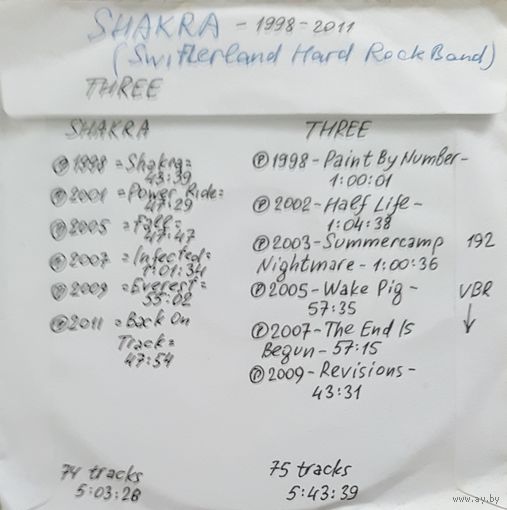 SHAKRA - 1998-2011
(Switzerland Hard Rock Band)
THREE
SHAKRA
℗ 1998 = Shakra =
43:39
℗ 2001 = Power Ride =
47:29
℗ 2005 = Fall =
47:47
℗ 2007 = Infected =
1:01:34
℗ 2009 = Everest =
55:02
℗ 2011 = Back On
Track =
47:54
74 tracks
5:03:28
THREE
℗ 1998 - Paint By Number -
1:00:01
℗ 2002 - Half Life -
1:04:38
℗ 2003 - Summercamp
Nightmare - 1:00:36
℗ 2005 - Wake Pig -
57:35
℗ 2007 - The End Is
Begun - 57:15
℗ 2009 - Revisions -
43:31
75 tracks
5:43:39
192
VBR
↓
www.ay.by